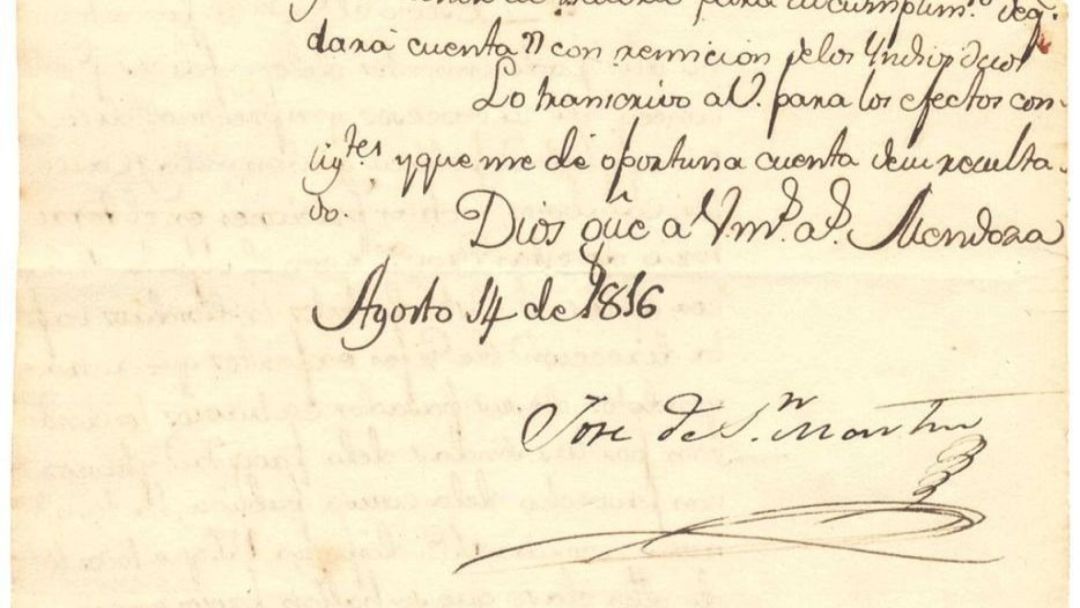 para su cumplim.to de q.e
dará cuenta n con remicion de los Yndividuos
Lo transcrivo a V. para los efectos con-
sig.tes y que me de oportuna cuenta de su resulta-
do.
Dios gũe a Vm.s a.s Mendoza
Agosto 14 de 1816
Jose de S.n Martin